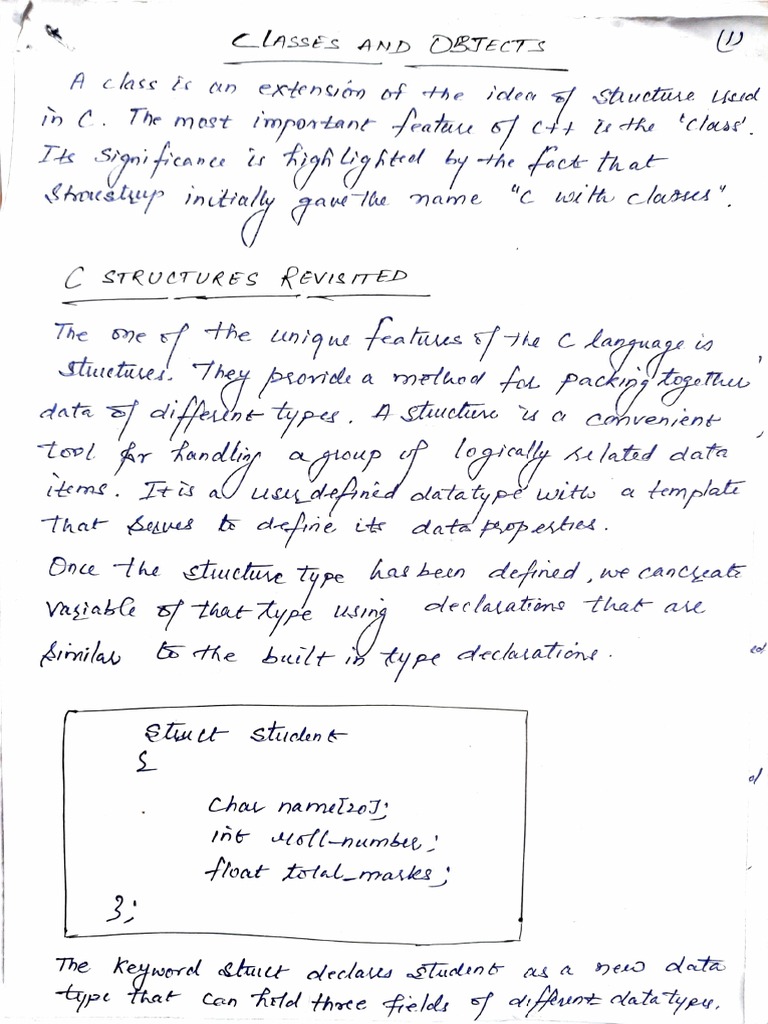 CLASSES AND OBJECTS (1)
A class is an extension of the idea of structure used
in C. The most important feature of C++ is the 'class'.
Its significance is highlighted by the fact that
Stroustrup initially gave the name "C with classes".
C STRUCTURES REVISITED
The one of the unique features of the C language is
structures. They provide a method for packing together
data of different types. A structure is a convenient
tool for handling a group of logically related data
items. It is a user defined datatype with a template
that serves to define its data properties.
Once the structure type has been defined, we can create
variable of that type using declarations that are
similar to the built in type declarations.
struct student
{
char name[20];
int roll_number;
float total_marks;
};
The keyword struct declares student as a new data
type that can hold three fields of different data types.